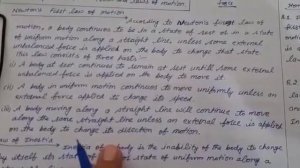 and laws of motion
force
Newton's First law of motion
According to Newton's first law of
motion, a body continues to be in a state of rest or in a state
of uniform motion along a straight line, unless some external
unbalanced force is applied on the body to change that state.
This law consists of three parts.
(i) A body at rest continues to remain at rest until some external
unbalanced force is applied on the body to move it.
(ii) A body in uniform motion continues to move uniformly unless an
external force applied to change its speed.
(iii) A body moving along a straight line will continue to move
along the same straight line unless an external force is applied
on the body to change its direction of motion.
of Inertia
Inertia of a body is the inability of the body to change
by itself its state of rest or state of uniform motion along a